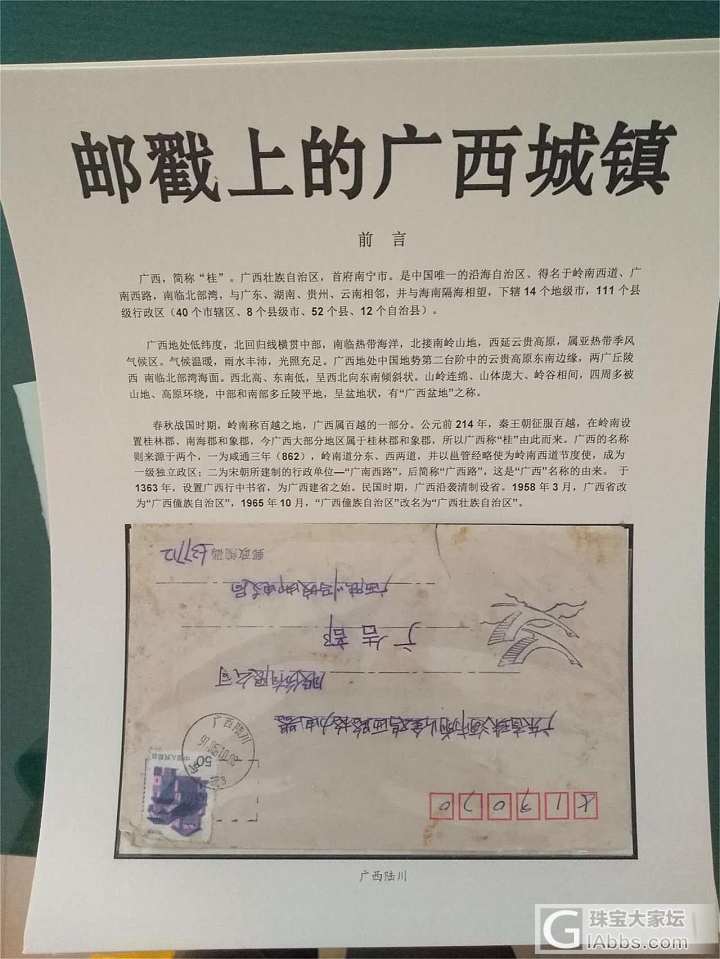 邮戳上的广西城镇
前 言
广西，简称“桂”。广西壮族自治区，首府南宁市。是中国唯一的沿海自治区、得名于岭南西道、广
南西路，南临北部湾，与广东、湖南、贵州、云南相邻，并与海南隔海相望，下辖 14 个地级市，111 个县
级行政区（40 个市辖区、8 个县级市、52 个县、12 个自治县）。
广西地处低纬度，北回归线横贯中部，南临热带海洋，北接南岭山地，西延云贵高原，属亚热带季风
气候区。气候温暖，雨水丰沛，光照充足。广西地处中国地势第二台阶中的云贵高原东南边缘，两广丘陵
西 南临北部湾海面。西北高、东南低，呈西北向东南倾斜状。山岭连绵、山体庞大、岭谷相间，四周多被
山地、高原环绕，中部和南部多丘陵平地，呈盆地状，有“广西盆地”之称。
春秋战国时期，岭南称百越之地，广西属百越的一部分。公元前 214 年，秦王朝征服百越，在岭南设
置桂林郡、南海郡和象郡，今广西大部分地区属于桂林郡和象郡，所以广西称“桂”由此而来。广西的名称
则来源于两个，一为咸通三年（862），岭南道分东、西两道，并以邕管经略使为岭南西道节度使，成为
一级独立政区；二为宋朝所建制的行政单位—“广南西路”，后简称“广西路”，这是“广西”名称的由来。 于
1363 年，设置广西行中书省，为广西建省之始。民国时期，广西沿袭清制设省。1958 年 3 月，广西省改
为“广西僮族自治区”，1965 年 10 月，“广西僮族自治区”改名为“广西壮族自治区”。
519070
广东省珠海市前山金鸡西路格力电器
股份有限公司
广告部
广西陆川马坡邮电支局
郵政編碼 537712
广西陆川
50分
中国人民邮政
广西陆川
珠宝大家坛
GIAbbs.com